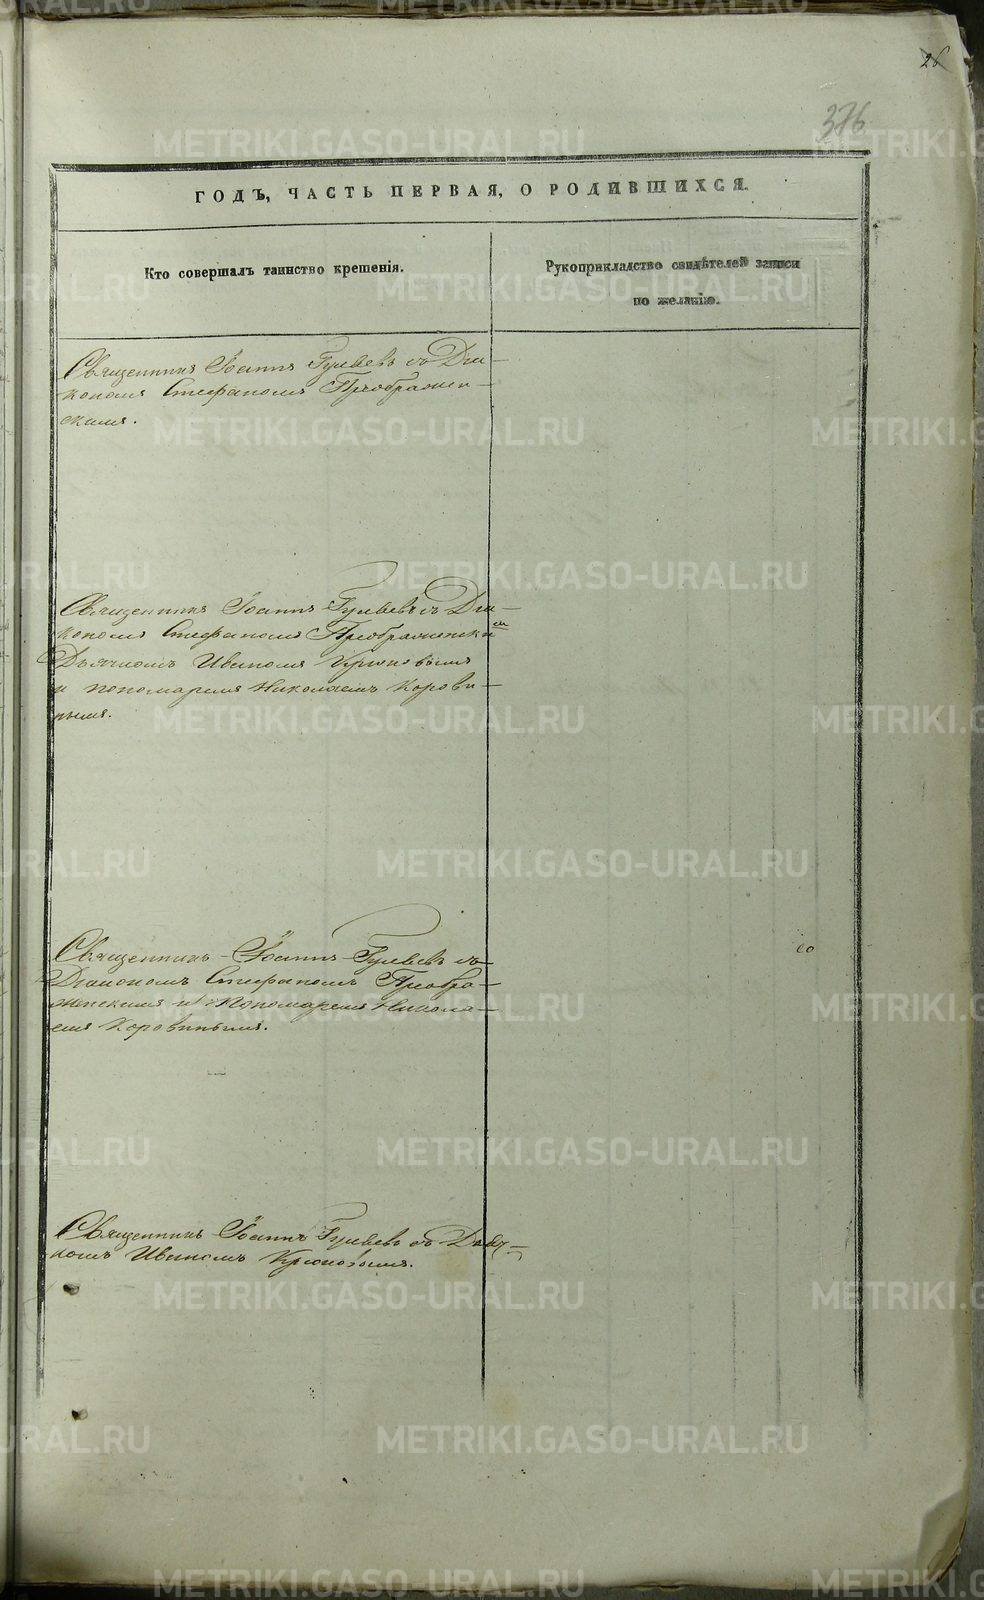 26
376
ГОДЪ, ЧАСТЬ ПЕРВАЯ, О РОДИВШИХСЯ.
Кто совершалъ таинство крещенія.
Рукоприкладство свидѣтелей записи
по желанію.
Священникъ Іоаннъ Гуляевъ съ Діа-
кономъ Стефаномъ Преображен-
скимъ.
Священникъ Іоаннъ Гуляевъ съ Діа-
кономъ Стефаномъ Преображенски
мъ
Дьячкомъ Иваномъ Крюковымъ
и пономаремъ Николаемъ Корови-
нымъ.
Священникъ Іоаннъ Гуляевъ съ
Діакономъ Стефаномъ Преобра-
женскимъ и Пономаремъ Никола-
емъ Коровинымъ.
Священникъ Іоаннъ Гуляевъ съ Дьяч-
комъ Иваномъ Крюковымъ.
METRIKI.GASO-URAL.RU